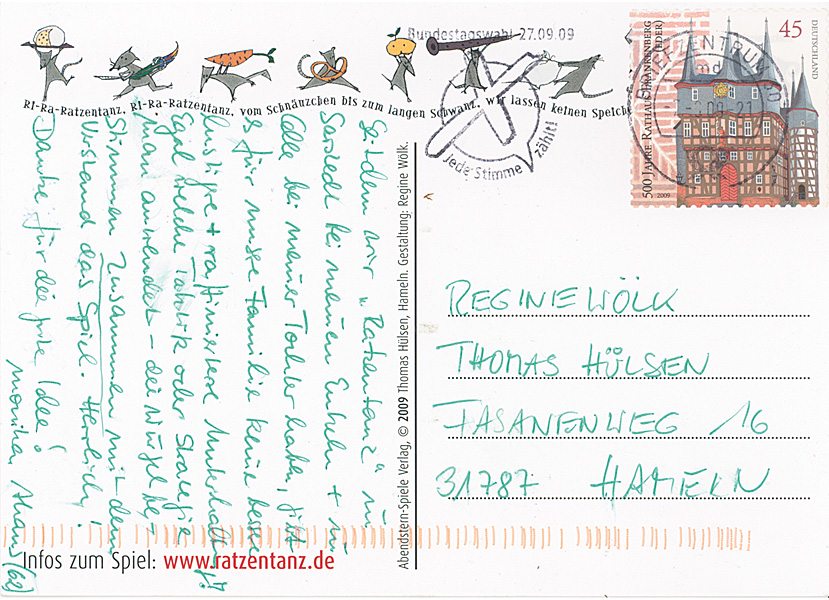 Ri-Ra-Ratzentanz, Ri-Ra-Ratzentanz, vom Schnäuzchen bis zum langen Schwanz, wir lassen keinen Speich
Bundestagswahl 27.09.09
Jede Stimme zählt!
BRIEFZENTRUM
45
DEUTSCHLAND
500 JAHRE RATHAUS FRANKENBERG (EDER)
2009
Seitdem wir „Ratzentanz" in
Sarstedt bei meinen Enkeln + in
Celle bei meiner Tochter haben, gibt
es für unsere Familie keine bessere
lustige + raffiniertere Unterhaltung!!
Egal welche Taktik oder Strategie
man anwendet – die Würfel be-
stimmen zusammen mit dem
Verstand das Spiel. Herrlich!
Danke für die gute Idee!
Monika Ahrens (62)
Abendstern-Spiele Verlag, © 2009 Thomas Hülsen, Hameln. Gestaltung: Regine Wölk.
REGINE WÖLK
THOMAS HÜLSEN
FASANENWEG 16
31787 HAMELN
Infos zum Spiel: www.ratzentanz.de